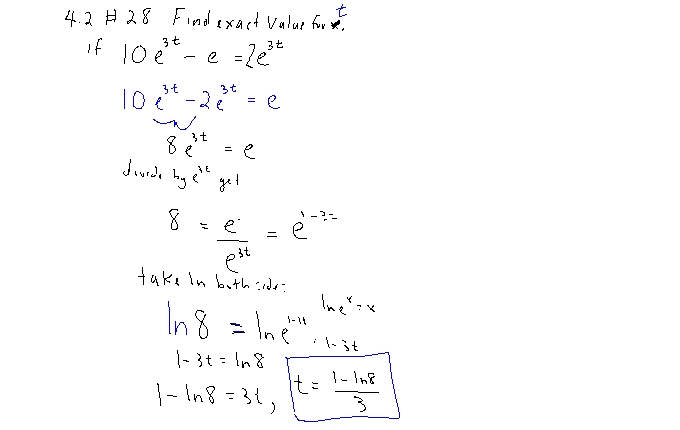 4.2 # 28 Find exact Value for t.
if 10e^{3t} - e = 2e^{3t}
10e^{3t} - 2e^{3t} = e
8e^{3t} = e
divide by e^{3t} get
8 = e/e^{3t} = e^{1-3t}
take ln both sides
ln e^x = x
ln 8 = ln e^{1-3t}
= 1-3t
1-3t = ln 8
1 - ln 8 = 3t, t = (1-ln8)/3